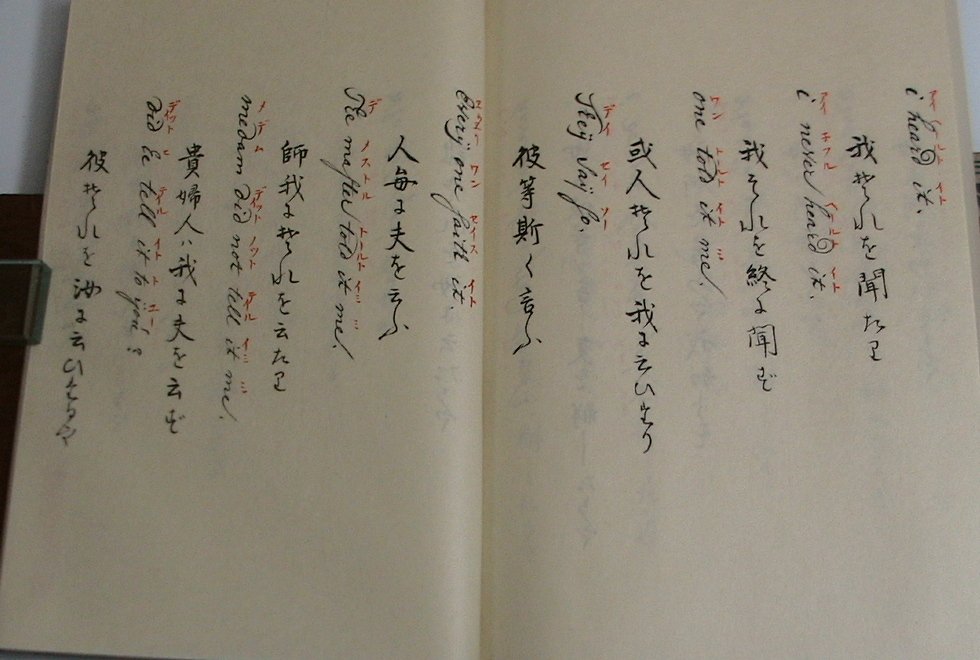 アイ ヘールト イト
i heard it.
我それを聞たり
アイ ネフル ヘールト イト
i never heard it.
我それを終に聞ず
ワン トールト イト ミ
one told it me.
或人それを我に云ひたり
デイ セイ ソー
They saij so.
彼等斯く言ふ
ワン セイス イト
every one saith it
人毎に夫を云ふ
デ メストル トールト イト ミ
The mester told it me.
師我にそれを云たり
メデム ディット ノット テイル イト ミ
medam did not tell it me.
貴婦人ハ我に夫を云ず
ディット ヒ テイル イト ト ユー
did he tell it to you?
彼それを汝に云ひたるや